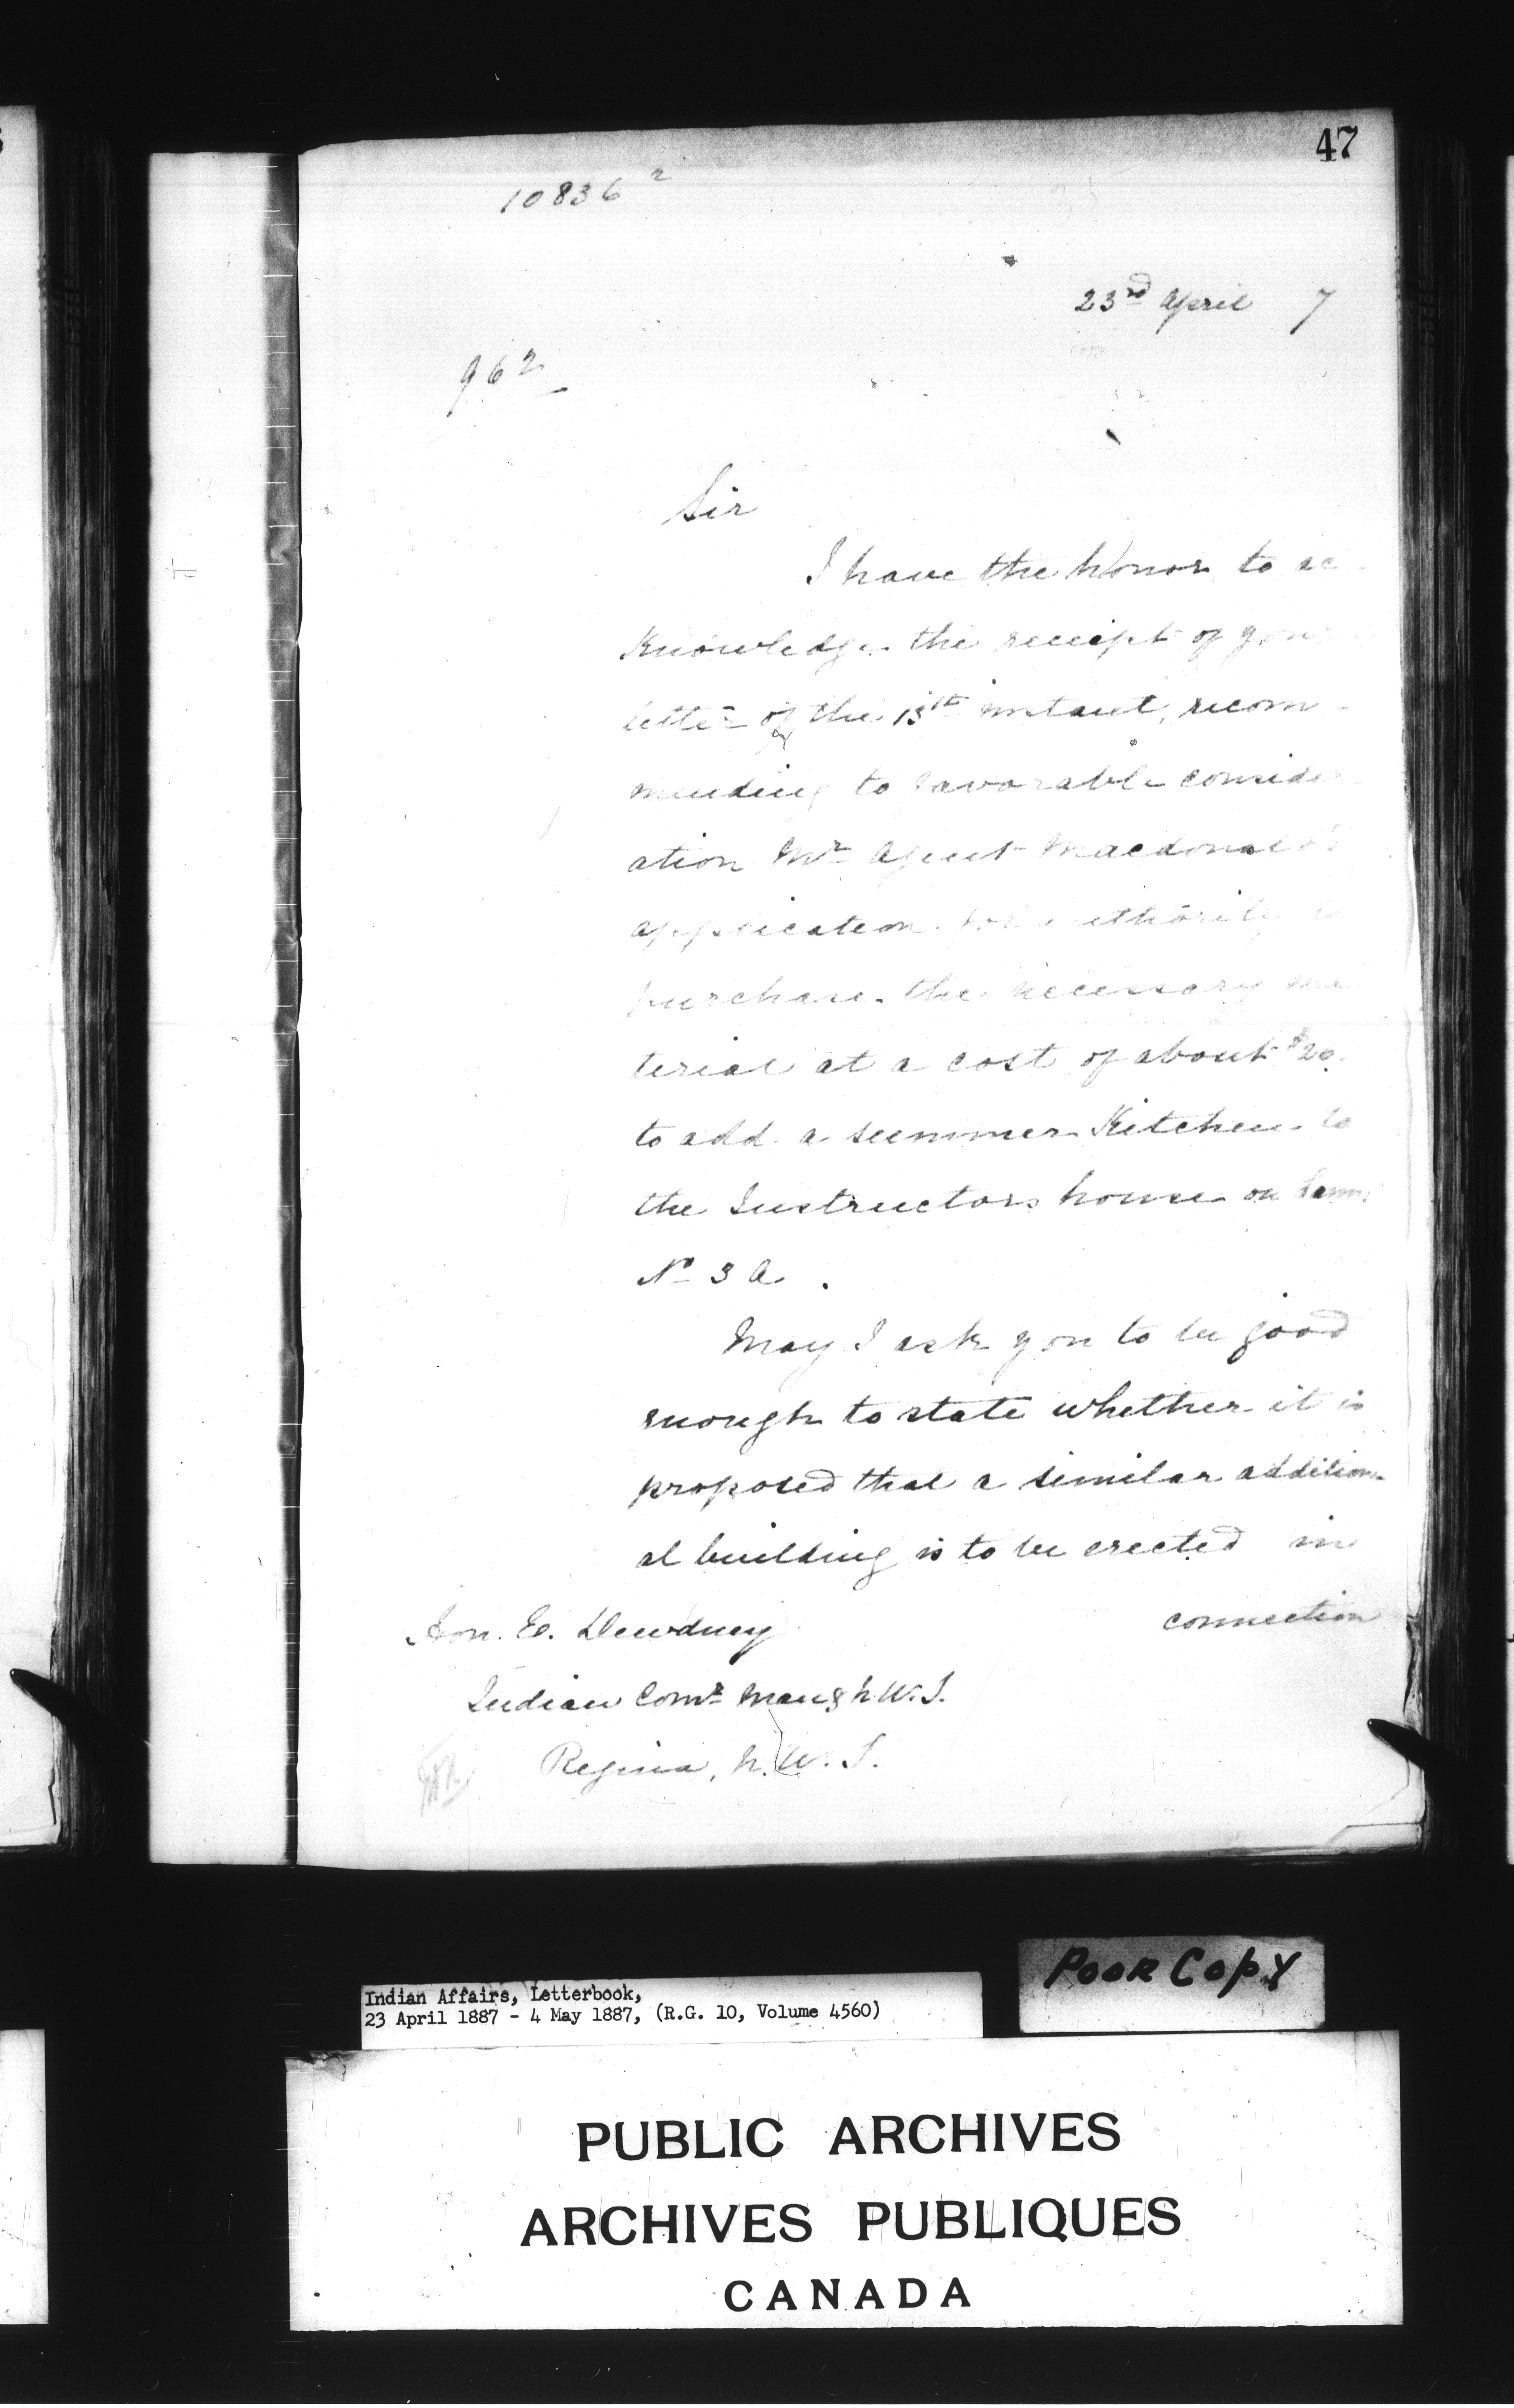 47
10836 2
23rd April 7
962
Sir
I have the honor to ac
knowledge the receipt of your
letter of the 13th instant, recom-
mending to favorable consider
ation Mr Agent Macdonald's
application for authority to
purchase the necessary ma
terial at a cost of about $20.
to add a summer Kitchen to
the Instructors house on Farm
No 3 A.
May I ask you to be good
enough to state whether it is
proposed that a similar addition-
al building is to be erected in
connection
Hon. E. Dewdney
Indian Comr Man & N.W.T.
Regina, N.W.T.
Poor Copy
Indian Affairs, Letterbook,
23 April 1887 - 4 May 1887, (R.G. 10, Volume 4560)
PUBLIC ARCHIVES
ARCHIVES PUBLIQUES
CANADA